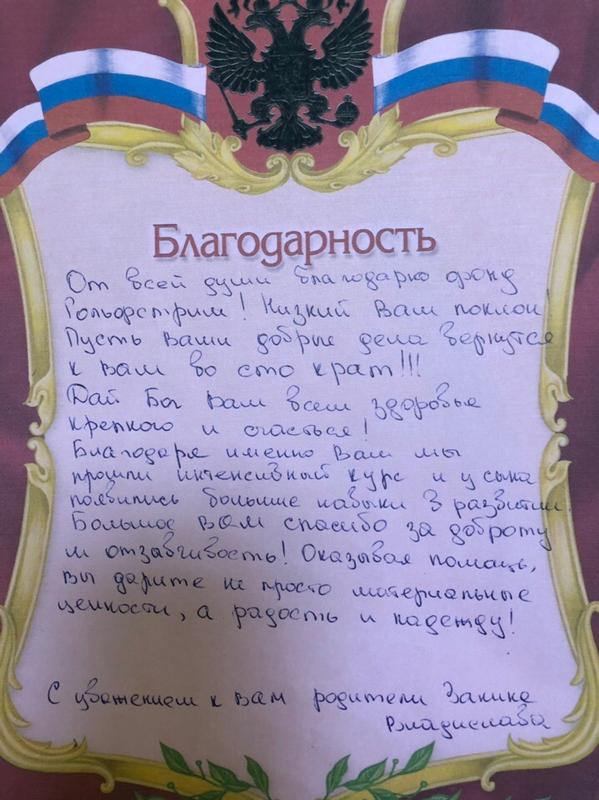 Благодарность
От всей души благодарю фонд
Гольфстрим! Низкий Вам поклон!
Пусть ваши добрые дела вернутся
к вам во сто крат!!!
Дай Бог Вам всем здоровья
крепкого и счастья!
Благодаря именно Вам мы
прошли интенсивный курс и у сына
появились большие навыки в развитии.
Большое Вам спасибо за доброту
и отзавчивость! Оказывая помощь,
вы дарите не просто материальные
ценности, а радость и надежду!
С уважением к вам родители
Владислава